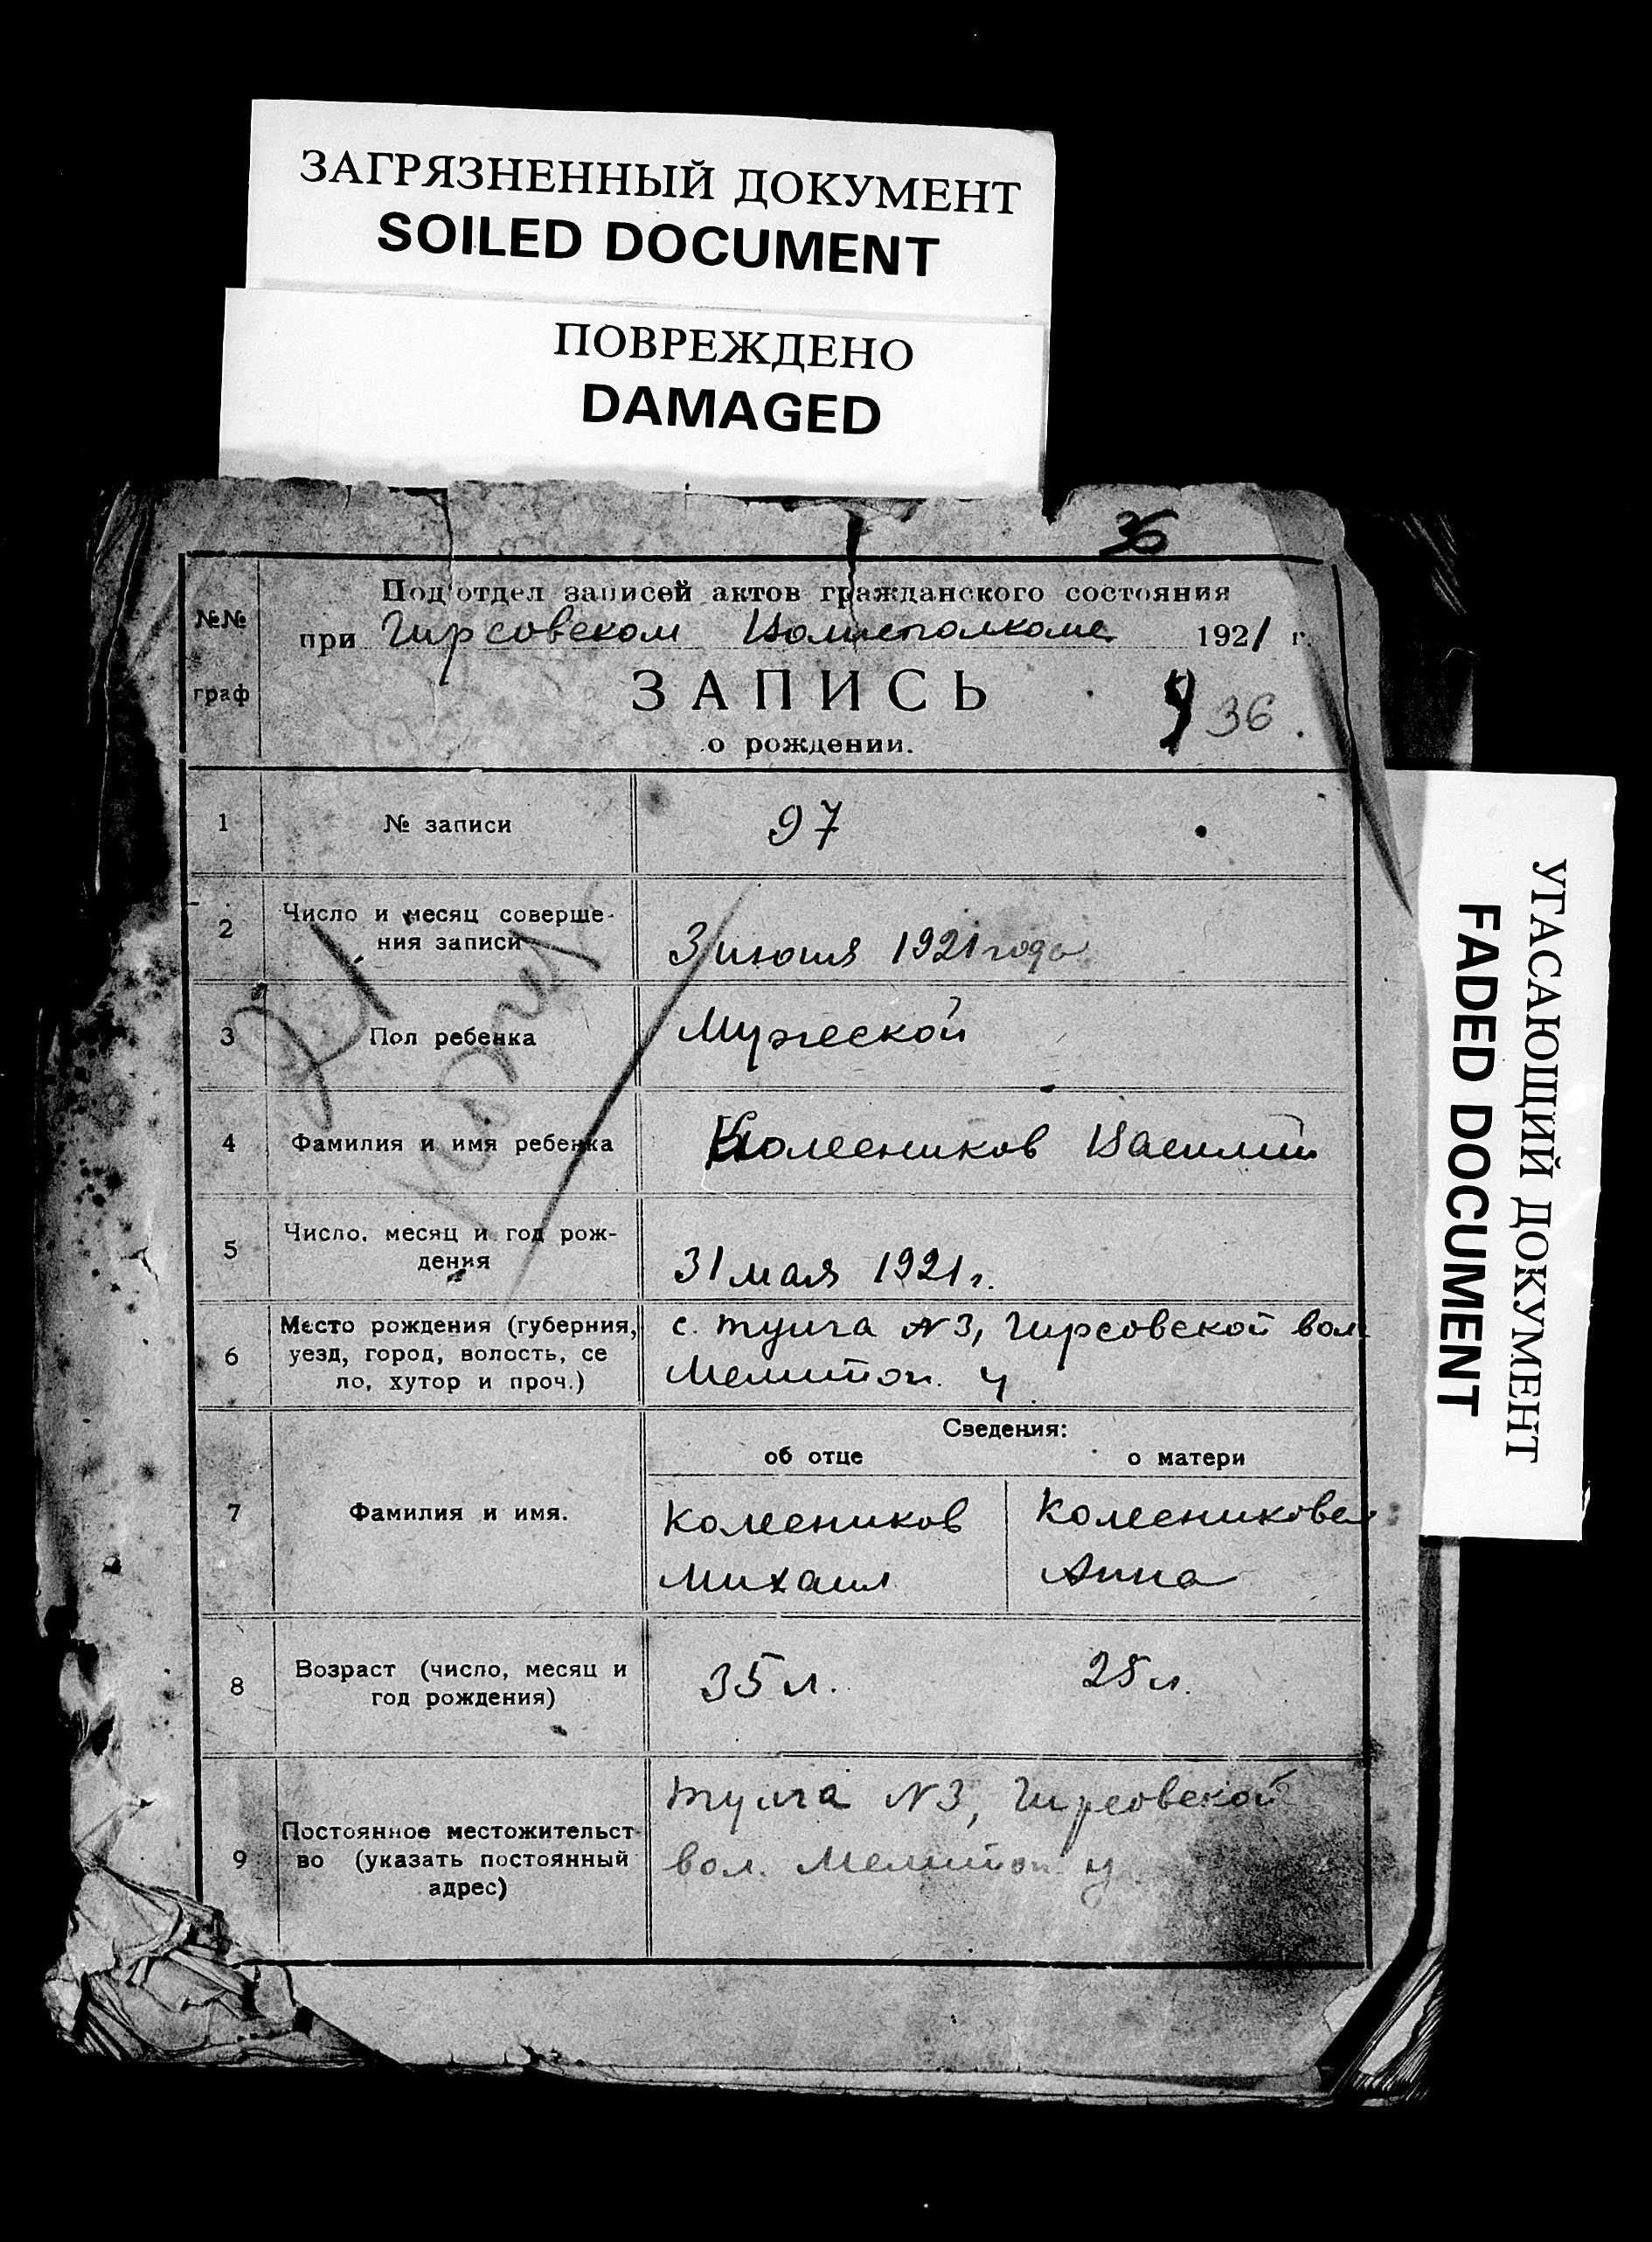 ЗАГРЯЗНЕННЫЙ ДОКУМЕНТ
SOILED DOCUMENT
ПОВРЕЖДЕНО
DAMAGED
36
№№
граф
Подотдел записей актов гражданского состояния
при Гирсовском Волисполкоме 1921 г.
ЗАПИСЬ
36
о рождении.
1 № записи 97
2 Число и месяц соверше-
ния записи 3 июня 1921 года
3 Пол ребенка Мужеской
4 Фамилия и имя ребенка Колесников Василий
5 Число, месяц и год рож-
дения 31 мая 1921 г.
6 Место рождения (губерния,
уезд, город, волость, се
ло, хутор и проч.)
с. N3, Гирсовской вол.
Мелитоп. у
Сведения:
об отце о матери
7 Фамилия и имя.
Колесников Колесникова
Михаил Анна
8 Возраст (число, месяц и
год рождения)
35 л. 25 л.
9 Постоянное местожительст-
во (указать постоянный
адрес)
N3, Гирсовской
вол. Мелитоп у
УГАСАЮЩИЙ ДОКУМЕНТ
FADED DOCUMENT